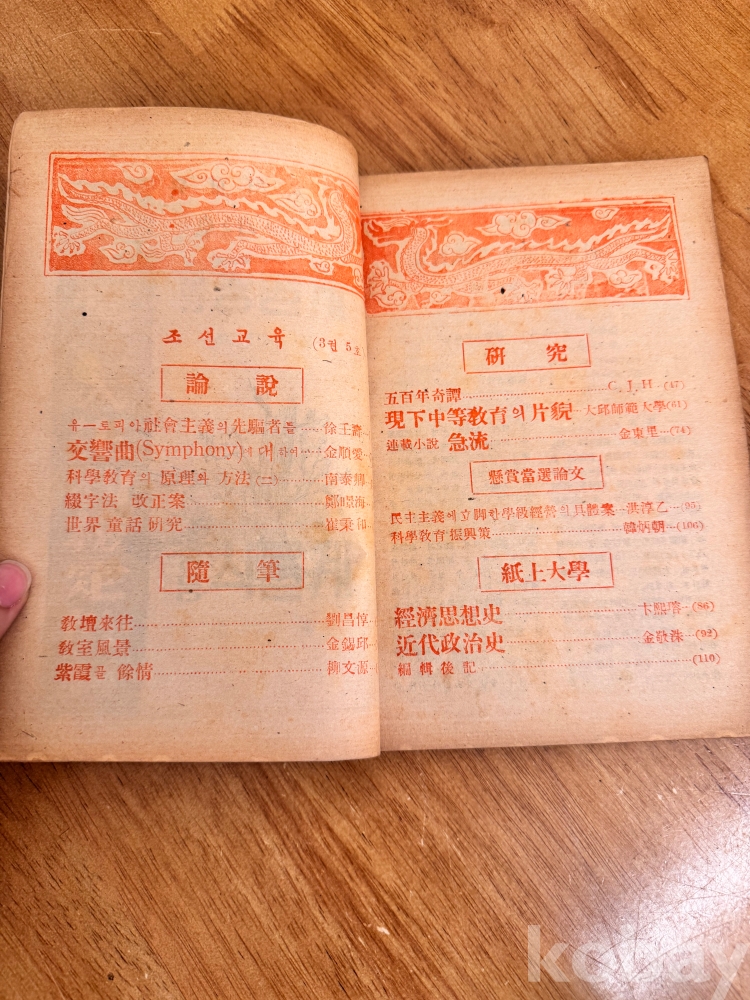 조선교육 (3권 5호
論說
유ー토피아社會主義의先驅者들 徐壬壽
交響曲(Symphony)에대하여 金順愛
科學敎育의 原理와 方法(二) 南泰
綴字法 改正案 鄭暻海
世界 童話 硏究 崔秉和
隨筆
敎壇來往 劉昌惇
敎室風景 金錫邱
紫霞를 餘情 柳文
硏究
五百年奇譚 C. J. H (47)
現下中等敎育의片貌 大邱師範大學(61)
連載小說 急流 金東里 (74)
懸賞當選論文
民主主義에立脚한學級經營의具體案 洪淳乙 (95)
科學敎育振興策 韓炳朝 (106)
紙上大學
經濟思想史 卞熙瑢 (86)
近代政治史 金敬洙 (92)
編輯後記 (110)
kobay